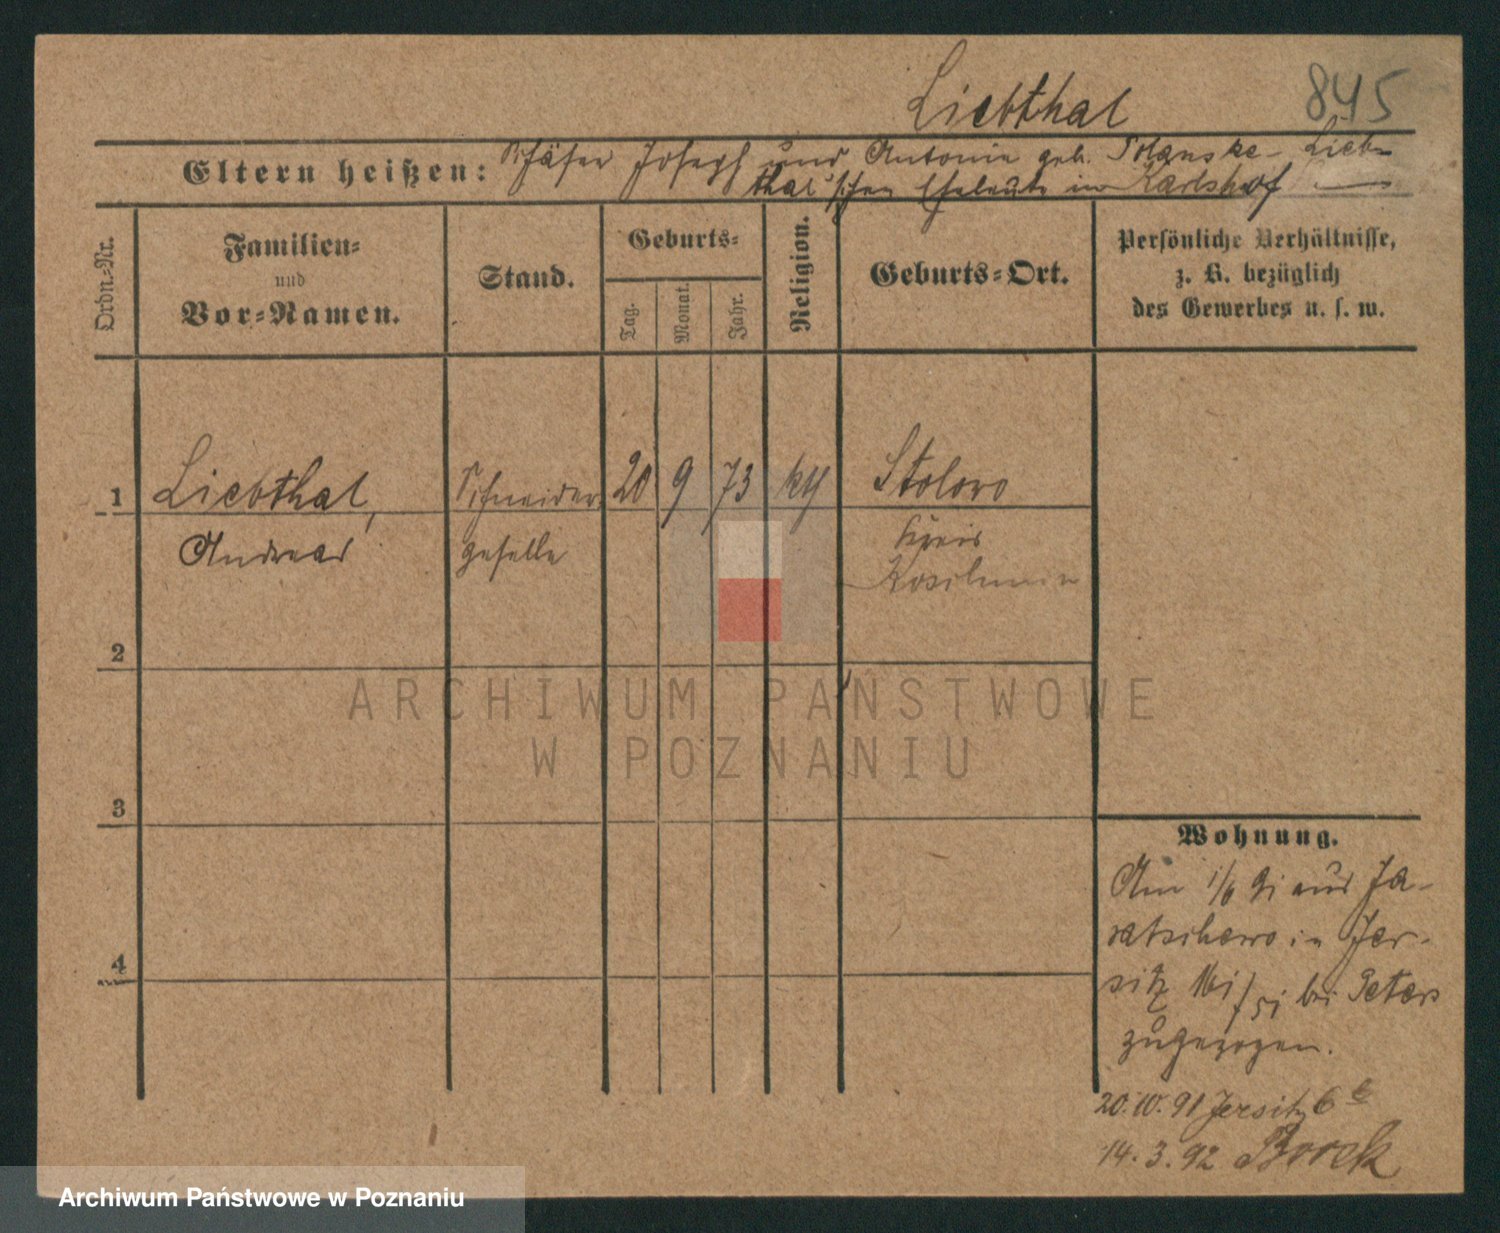 Liebthal 845
Eltern heißen: Schäfer Joseph und Antonie geb. Lieb-
thal'schen Eheleute in Karlshof
Ordn.-Nr.
Familien-
und
Vor-Namen.
Stand.
Geburts-
Tag.
Monat.
Jahr.
Religion.
Geburts-Ort.
Persönliche Verhältnisse,
z. B. bezüglich
des Gewerbes u. s. w.
1 Liebthal, Schneider- 20 9 73 Stolowo
Andreas geselle Kreis
Koschmin
2
3
4
Wohnung.
Am 91 aus Ja-
ratschewo in Jer-
sitz bei Peters
zugezogen.
20.10.91 Jersitz 6
14.3.92 Borek
ARCHIWUM PAŃSTWOWE
W POZNANIU
Archiwum Państwowe w Poznaniu